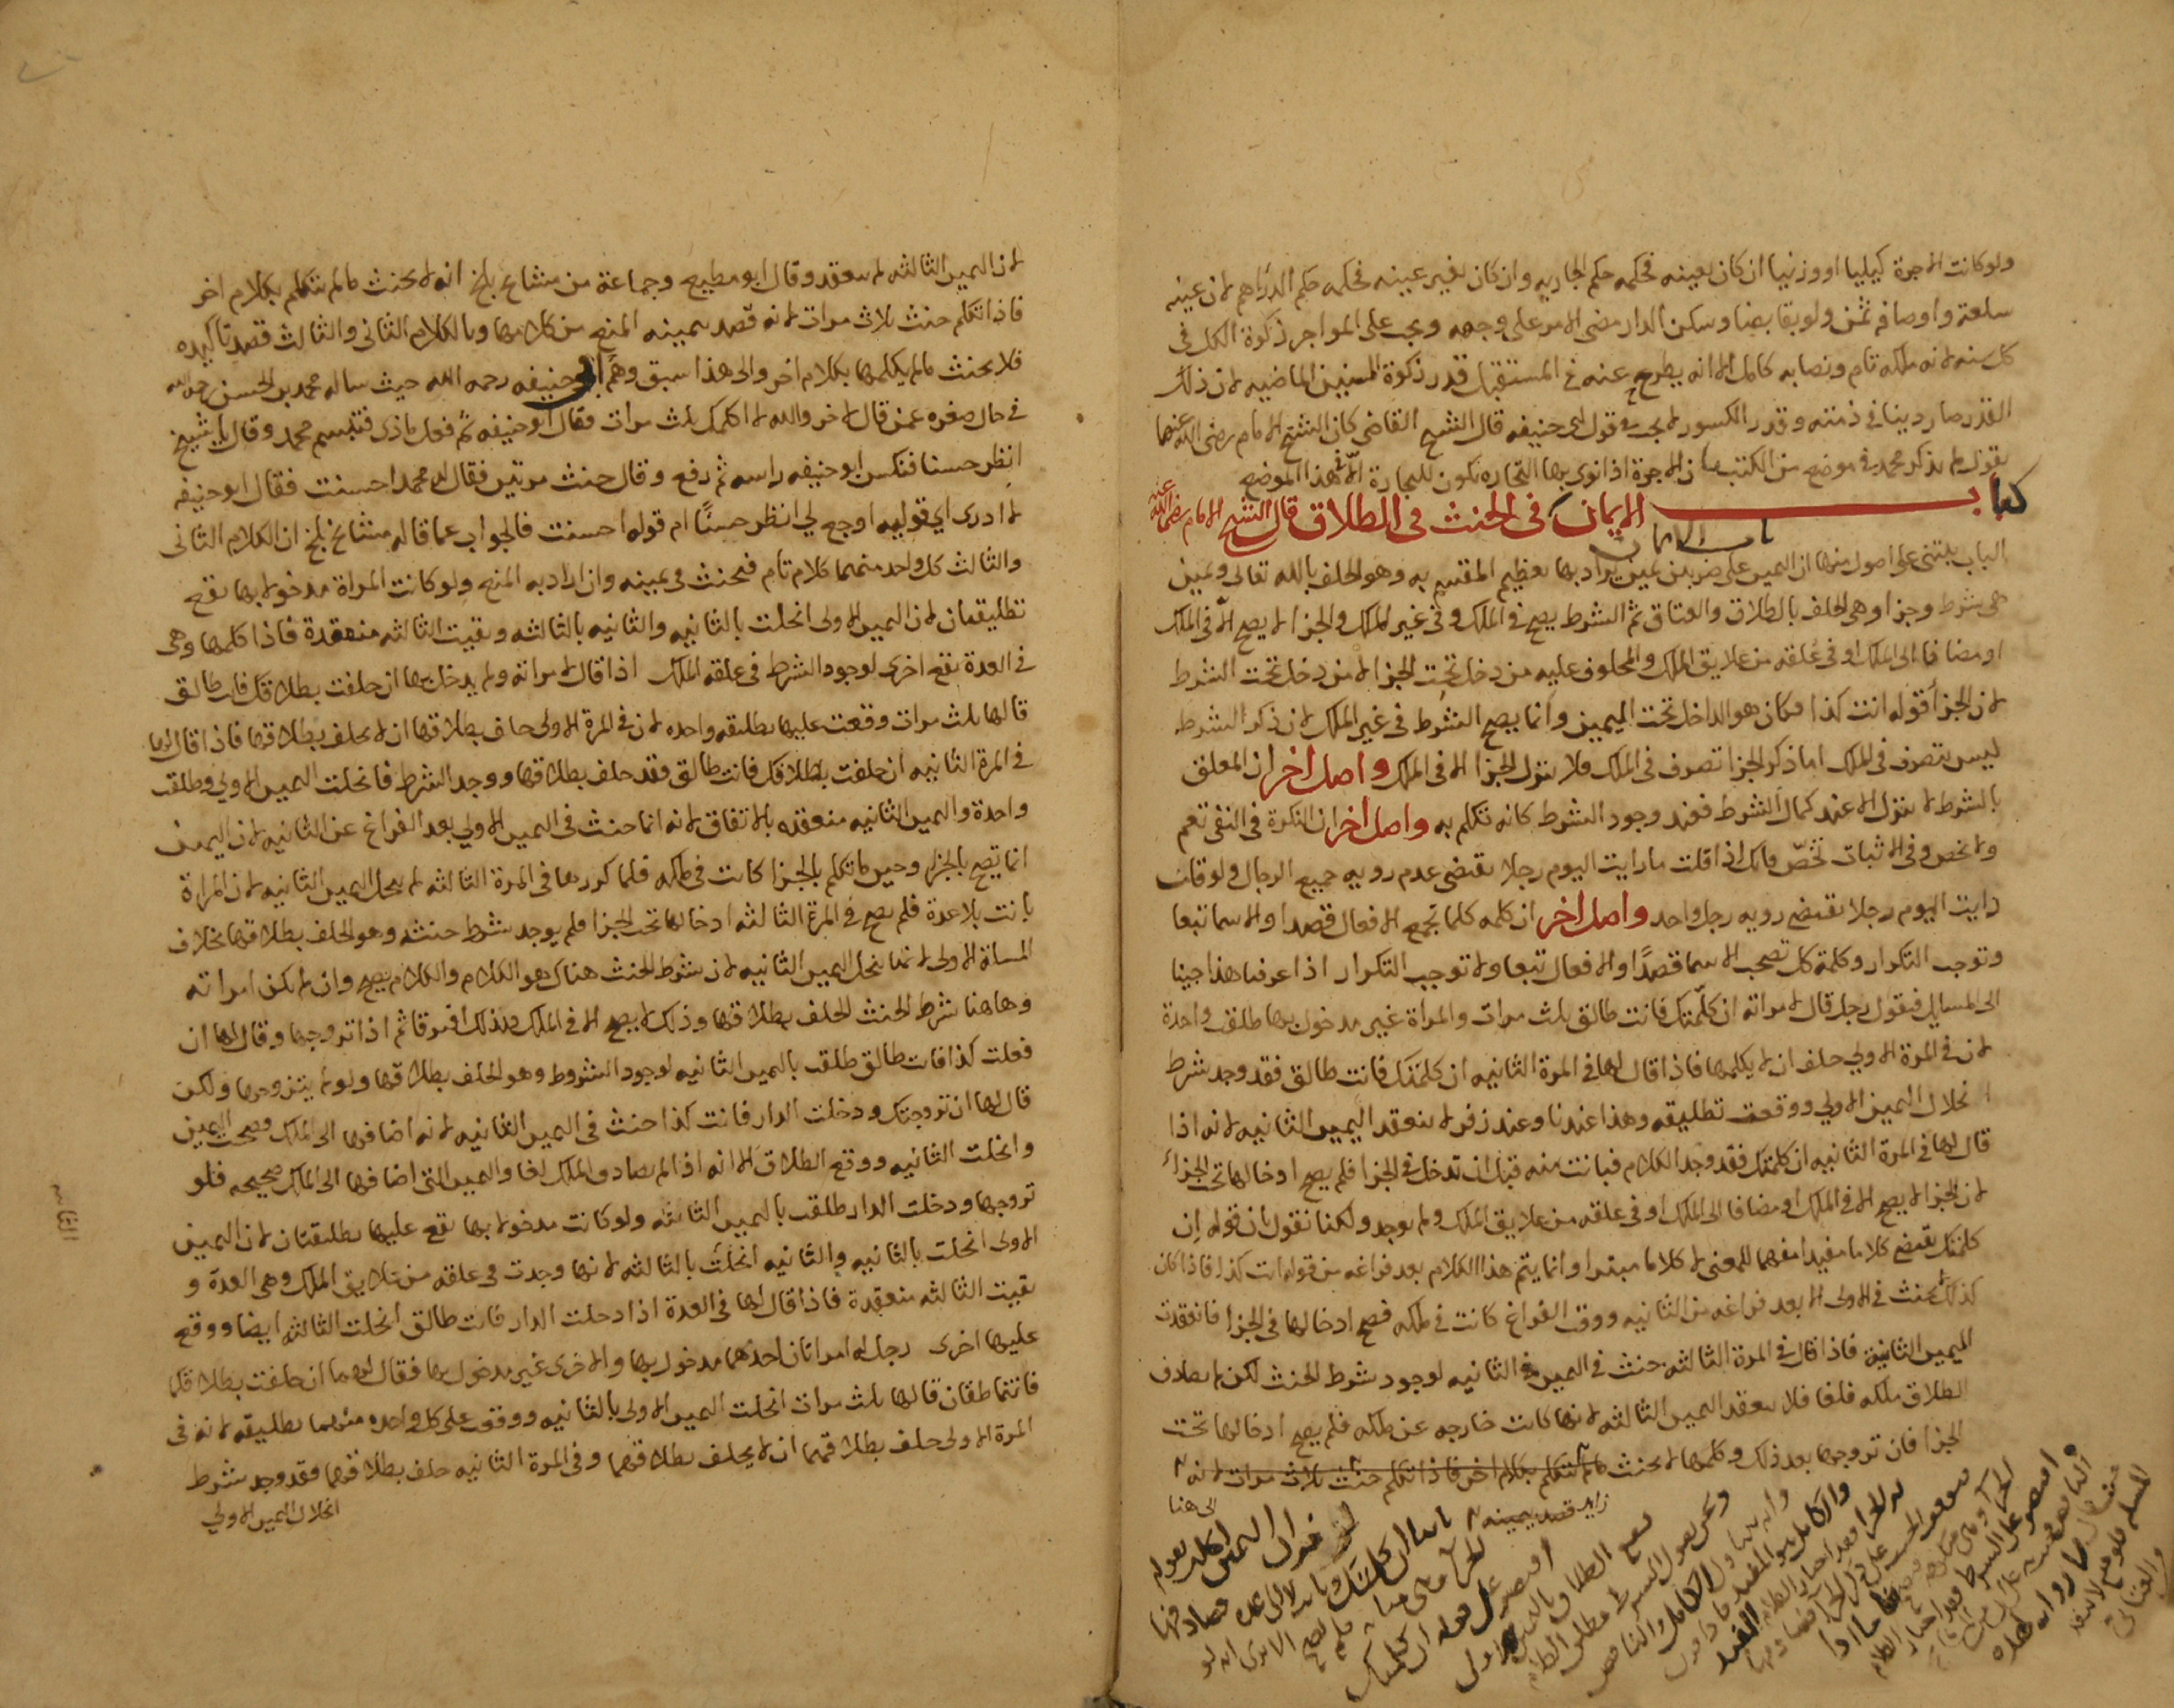 ولو كانت الاجرة كيليا او وزنيا ان كان بعينه فحكمه حكم الجاريه وان كان بغير عينه فحكمه حكم الدراهم لان عينه
سلعة واوصافه ثمن ولو تقابضا وسكن الدار مضى الامر على وجهه ويجب على المواجر زكوة الكل في
كل سنه لانه ملكه تام ونصابه كامل الا انه يطرح عنه في المستقبل قدر زكوة السنين الماضيه لان ذلك
القدر صار دينا في ذمته وقدر الكسور لا يجب في قول ابي حنيفه قال الشيخ القاضي كان الشيخ الامام رضي الله عنهما
يقول لم يذكر محمد في موضع من الكتب ان الاجرة اذا نوى بها التجاره تكون للتجارة الا في هذا الموضع
كتاب الايمان في الحنث في الطلاق قال الشيخ الامام رضي الله عنه
باب الايمان
الباب يبتنى على اصول منها ان اليمين على ضربين يمين يراد بها تعظيم المقسم به وهو الحلف بالله تعالى ويمين
هي شرط وجزا وهي الحلف بالطلاق والعتاق ثم الشرط يصح في الملك وفي غير الملك والجزا لا يصح الا في الملك
او مضافا الى الملك او في علقه من علايق الملك والمحلوف عليه من دخل تحت الجزا لا من دخل تحت الشرط
لان الجزا قوله انت كذا فكان هو الداخل تحت اليمين وانما يصح الشرط في غير الملك لان ذكر الشرط
ليس بتصرف في الملك اما ذكر الجزا تصرف في الملك فلا ينزل الجزا الا في الملك واصل اخر ان المعلق
بالشرط لا ينزل الا عند كمال الشرط فعند وجود الشرط كانه تكلم به واصل اخر ان النكرة في النفي تعم
ولا تخص وفي الاثبات تخص فانك اذا قلت ما رايت اليوم رجلا يقتضي عدم رويه جميع الرجال ولو قلت
رايت اليوم رجلا يقتضي رويه رجل واحد واصل اخر ان كلمه كلما تجمع الافعال قصدا والاسما تبعا
وتوجب التكرار وكلمة كل تصحب الاسما قصدا والافعال تبعا ولا توجب التكرار اذا عرفنا هذا جينا
الى المسايل فنقول رجل قال لامراته ان كلمتك فانت طالق ثلث مرات والمراة غير مدخول بها طلقت واحدة
لان في المرة الاولي حلف ان لا يكلمها فاذا قال لها في المرة الثانيه ان كلمتك فانت طالق فقد وجد شرط
انحلال اليمين الاولي ووقعت تطليقه وهذا عندنا وعند زفر لا ينعقد اليمين الثانيه لانه اذا
قال لها في المرة الثانيه ان كلمتك فقد وجد الكلام فبانت منه قبل ان تدخل في الجزا فلم يصح ادخالها تحت الجزاء
لان الجزا لا يصح الا في الملك او مضافا الى الملك او في علقه من علايق الملك ولم يوجد ولكنا نقول بان قوله ان
كلمتك يقتضي كلاما مفيدا مفهما للمعنى لا كلاما مبتدا وانما يتم هذا الكلام بعد فراغه من قوله انت كذا فاذا كان
كذلك لا يحنث في الاولى الا بعد فراغه من الثانيه ووقت الفراغ كانت في ملكه فصح ادخالها في الجزا فانعقدت
اليمين الثانية فاذا قال في المرة الثالثه حنث في اليمين الثانيه لوجود شرط الحنث لكن لم يصادف
الطلاق ملكه فلغا فلا ينعقد اليمين الثالثه لانها كانت خارجه عن ملكه فلم يصح ادخالها تحت
الجزا فان تزوجها بعد ذلك وكلمها لا يحنث ما لم تتكلم بكلام اخر فاذا تكلم حنث ثلاث مرات لانه
زايد قصد بيمينه
الى هنا
لان اليمين الثالثه لم تنعقد وقال ابو مطيع وجماعة من مشايخ بلخ انه لا يحنث ما لم يتكلم بكلام اخر
فاذا تكلم حنث ثلاث مرات لانه قصد بيمينه المنع من كلامها وبالكلام الثاني والثالث قصد تاكيده
فلا يحنث ما لم يكلمها بكلام اخر والى هذا سبق وهم ابي حنيفه رحمه الله حيث ساله محمد بن الحسن رحمه الله
في حال صغره عمن قال لاخر والله لا اكلمك ثلث مرات فقال ابو حنيفه ثم فعل ماذى فتبسم محمد وقال يا شيخ
انظر حسنا فنكس ابو حنيفه راسه ثم رفع وقال حنث مرتين فقال له محمد احسنت فقال ابو حنيفه
لا ادرى اي قوليه اوجع لي انظر حسنا ام قوله احسنت فالجواب عما قاله مشايخ بلخ ان الكلام الثاني
والثالث كل واحد منهما كلام تام فيحنث في يمينه وان اراد به المنع ولو كانت المراة مدخولا بها يقع
تطليقتان لان اليمين الاولى انحلت بالثانيه والثانيه بالثالثه وبقيت الثالثه منعقدة فاذا كلمها وهي
في العدة يقع اخرى لوجود الشرط في علقه الملك اذا قال لامراته ولم يدخل بها ان حلفت بطلاقك فانت طالق
قالها ثلث مرات وقعت عليها تطليقه واحده لان في المرة الاولى حلف بطلاقها ان لا يحلف بطلاقها فاذا قال لها
في المرة الثانيه ان حلفت بطلاقك فانت طالق فقد حلف بطلاقها ووجد الشرط فانحلت اليمين الاولي وطلقت
واحدة واليمين الثانيه منعقده بالاتفاق لانه انما حنث في اليمين الاولي بعد الفراغ عن الثانيه لان اليمين
انما تصح بالجزا وحين ما تكلم بالجزا كانت في ملكه فلما كررها في المرة الثالثه لم ينحل اليمين الثانيه لان المراة
بانت بلا عدة فلم يصح في المرة الثالثه ادخالها تحت الجزا فلم يوجد شرط حنثه وهو الحلف بطلاقها بخلاف
المسالة الاولى لانما ينحل اليمين الثانيه لان شرط الحنث هناك هو الكلام والكلام يصح وان لم تكن امراته
وهاهنا شرط الحنث الحلف بطلاقها وذلك لا يصح الا في الملك فلذلك افترقا ثم اذا تزوجها وقال لها ان
فعلت كذا فانت طالق طلقت باليمين الثانيه لوجود الشروط وهو الحلف بطلاقها ولو لم يتزوجها ولكن
قال لها ان تزوجتك ودخلت الدار فانت كذا حنث في اليمين الثانيه لانه اضافها الى الملك وصحت اليمين
وانحلت الثانيه ووقع الطلاق الا انه اذا لم يصادف الملك لغا واليمين التي اضافها الى الملك صحيحه فلو
تزوجها ودخلت الدار طلقت باليمين الثالثه ولو كانت مدخولا بها يقع عليها تطليقتان لان اليمين
الاولى انحلت بالثانيه والثانيه انحلت بالثالثه لانها وجدت في علقه من علايق الملك وهي العدة و
بقيت الثالثه منعقدة فاذا قال لها في العدة اذا دخلت الدار فانت طالق انحلت الثالثه ايضا ووقع
عليها اخرى رجل له امراتان احدهما مدخول بها والاخرى غير مدخول بها فقال لهما ان حلفت بطلاقكما
فانتما طالقان قالها ثلث مرات انحلت اليمين الاولى بالثانيه ووقعت على كل واحده منهما تطليقه لانه في
المرة الاولى حلف بطلاقهما ان لا يحلف بطلاقهما وفي المرة الثانيه حلف بطلاقهما فقد وجد شرط
انحلال اليمين الاولي